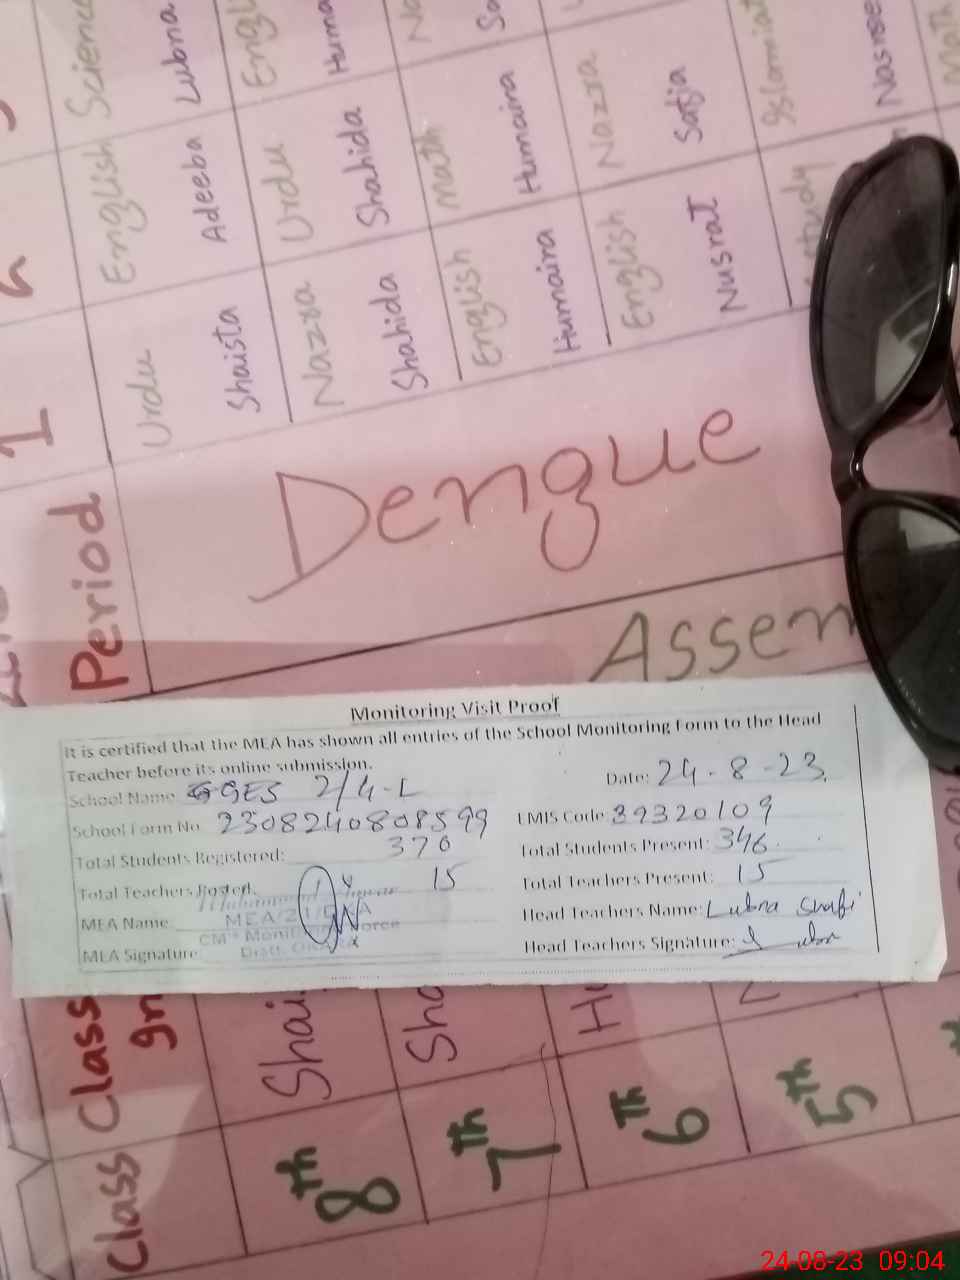 Science
Lubna
English Urdu
Adeeba Shaista
Urdu Nazra
Huma
Shahida Shahida
Math English
Humaira Humaira
Nazra English
Safia Nusrat
Nasree
Math
I
Period
Dengue
Assem
Monitoring Visit Proof
It is certified that the MEA has shown all entries of the School Monitoring Form to the Head
Teacher before its online submission.
School Name: GGES 2/4-L Date: 24-8-23
School Form No 2308240808599 EMIS Code: 39320109
Total Students Registered: 370 Total Students Present: 346
Total Teachers Posted: 15 Total Teachers Present: 15
MEA Name: Head Teachers Name: Lubna Shafi
MEA Signature: Head Teachers Signature:
Class
Class 8th 7th 6th 5th
24-08-23 09:04